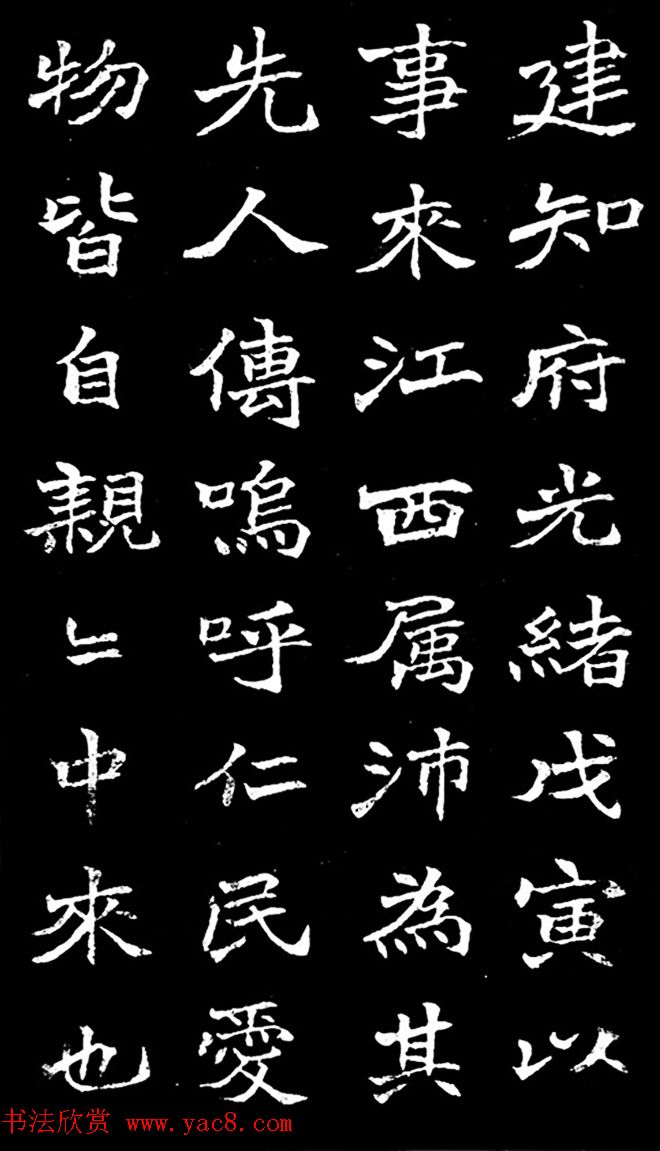 建知府光緒戊寅以
事來江西属沛為其
先人傳嗚呼仁民愛
物皆自親〻中來也
书法欣赏 www.yac8.com